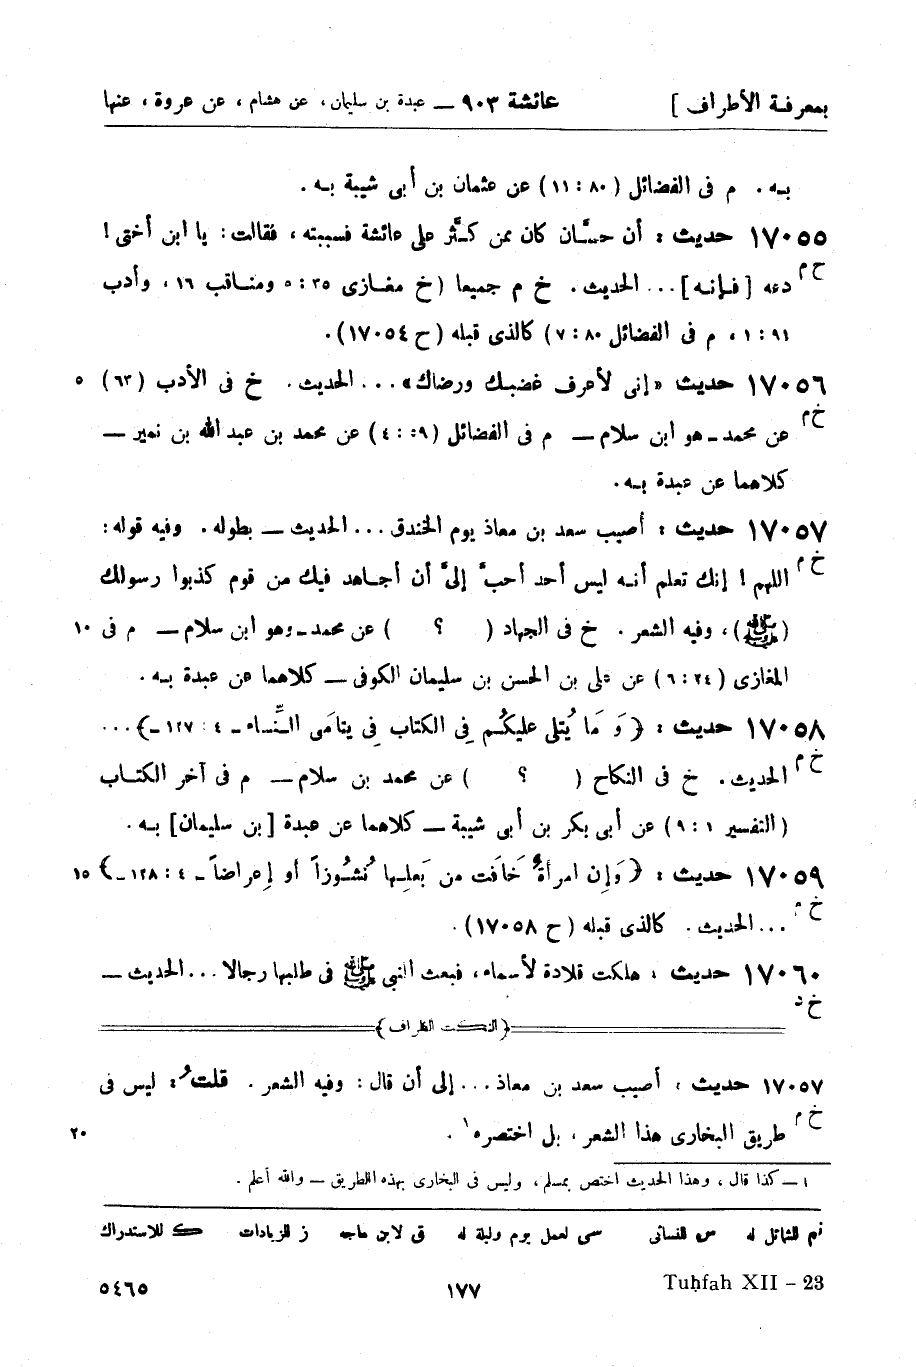 بمعرفة الأطراف ] عائشة ٩٠٣ — عبدة بن سليمان، عن هشام، عن عروة، عنها
بـه. م فى الفضائل (٨٠ : ١١) عن عثمان بن أبى شيبة بـه.
١٧٠٥٥ حديث : أن حسَّان كان ممن كثَّر على عائشة فسببته، فقالت: يا ابن أختى!
خ م دعه [فـإنـه]... الحديث. خ م جميعا (خ مغـازى ٣٥ : ٥ ومنـاقب ١٦، وأدب
٩١ : ١، م فى الفضائل ٨٠ : ٧) كالذى قبله (ح ١٧٠٥٤).
١٧٠٥٦ حديث «إنى لأعرف غضبـك ورضاك»... الحديث. خ فى الأدب (٦٣) ٥
خ م عن محمـد ـ هو ابن سلام — م فى الفضائل ( : ٤) عن محمد بن عبد الله بن نمير —
كلاهما عن عبدة بـه.
١٧٠٥٧ حديث : أصيب سعد بن معاذ يوم الخندق... الحديث — بطوله. وفيه قوله:
خ م اللهم! إنك تعلم أنـه ليس أحد أحبُّ إلىَّ أن أجـاهد فيك من قوم كذبوا رسولك
(ﷺ)، وفيه الشعر. خ فى الجهاد ( ؟ ) عن محمـد ـ وهو ابن سلام — م فى ١٠
المغازى (٢٤ : ٦) عن على بن الحسن بن سليمان الكوفى — كلاهما عن عبدة بـه.
١٧٠٥٨ حديث : ﴿وَ مَا يُتلى عليكُـم فِى الكتاب فِى يتامَى النِّسـاء ـ ٤ : ١٢٧ ـ﴾...
خ م الحديث. خ فى النكاح ( ؟ ) عن محمد بن سلام — م فى آخر الكتـاب
(التفسير ١ : ٩) عن أبى بكر بن أبى شيبة — كلاهما عن عبدة [بن سليمان] بـه.
١٧٠٥٩ حديث : ﴿وَإن امرأةٌ خَافَت من بَعلِـها نُشـوزاً أو إعراضاً ـ ٤ : ١٢٨ ـ﴾ ١٥
خ م ... الحديث. كالذى قبله (ح ١٧٠٥٨).
١٧٠٦٠ حديث : هلكت قلادة لأسماء، فبعث النبى ﷺ فى طلبها رجالا... الحديث —
خ د
﴿النكت الظراف﴾
١٧٠٥٧ حديث : أصيب سعد بن معاذ... إلى أن قال: وفيه الشعر. قلتُ: ليس فى
خ م طريق البخارى هذا الشعر، بل اختصره١. ٢٠
١ — كذا قال، وهذا الحديث اختص بمسلم، وليس فى البخارى بهذه الطريق — والله أعلم.
تم للشمائل له س للنسائى سى لعمل يوم وليلة له ق لابن ماجه ز للزيادات ك للاستدراك
Tuḥfah XII – 23 ١٧٧ ٥٤٦٥